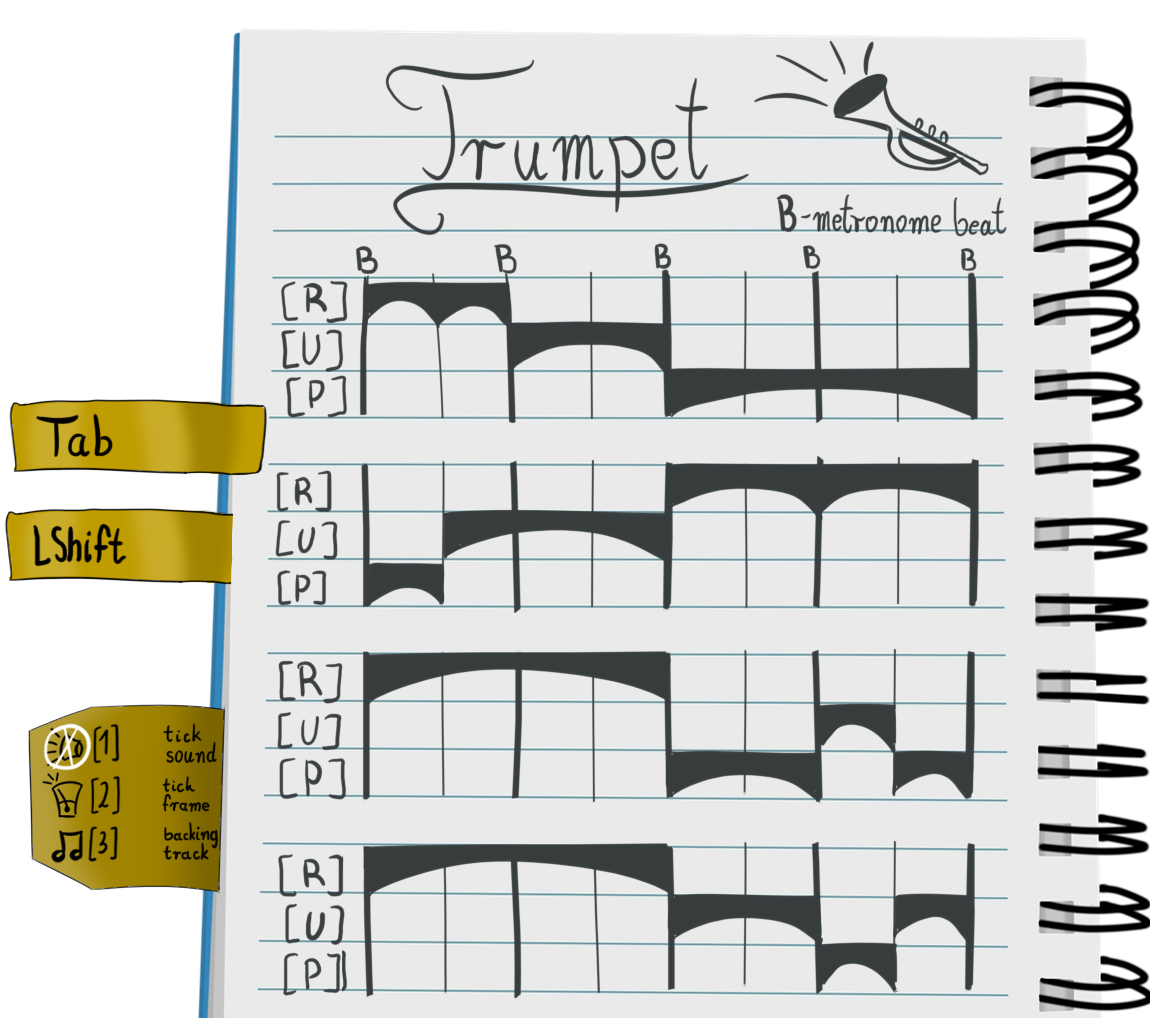 Trumpet
B-metronome beat
B B B B B
[R]
[U]
[P]
Tab
[R]
[U]
[P]
LShift
[R]
[U]
[P]
[1] tick sound
[2] tick frame
[3] backing track
[R]
[U]
[P]